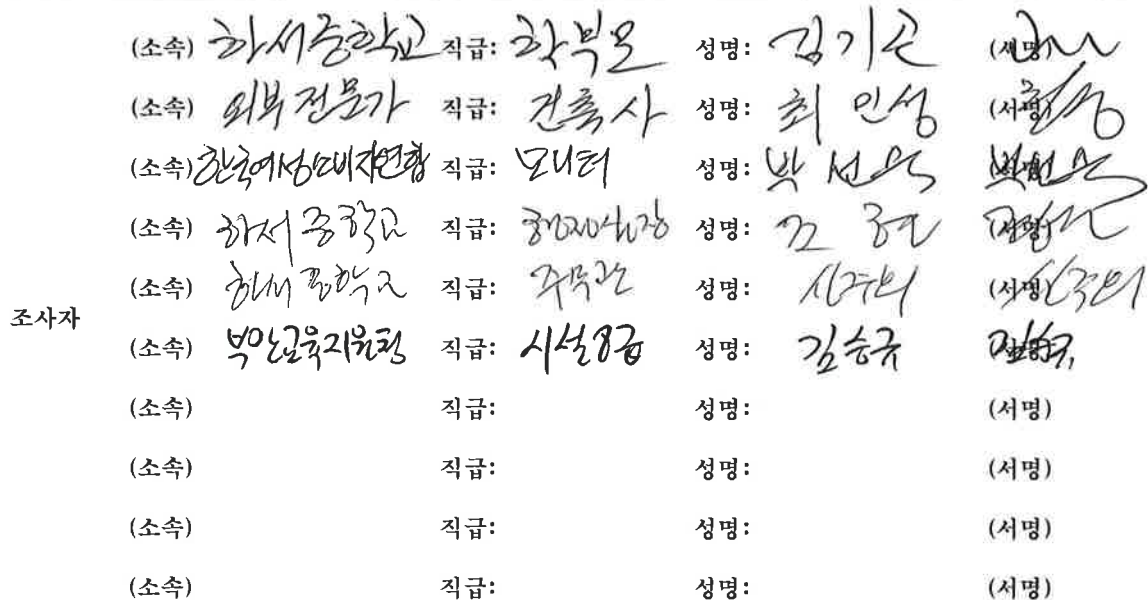 (소속) 하서중학교 직급: 학부모 성명: 김기곤
(소속) 외부전문가 직급: 건축사 성명: 최인성 (서명)
(소속) 한국여성소비자연합 직급: 모니터 성명: 박선욱
(소속) 하서중학교 직급: 행정실장 성명: 조현
(소속) 하서중학교 직급: 주무관 성명: (서명)
조사자
(소속) 부안교육지원청 직급: 시설8급 성명: 김승규
(소속) 직급: 성명: (서명)
(소속) 직급: 성명: (서명)
(소속) 직급: 성명: (서명)
(소속) 직급: 성명: (서명)